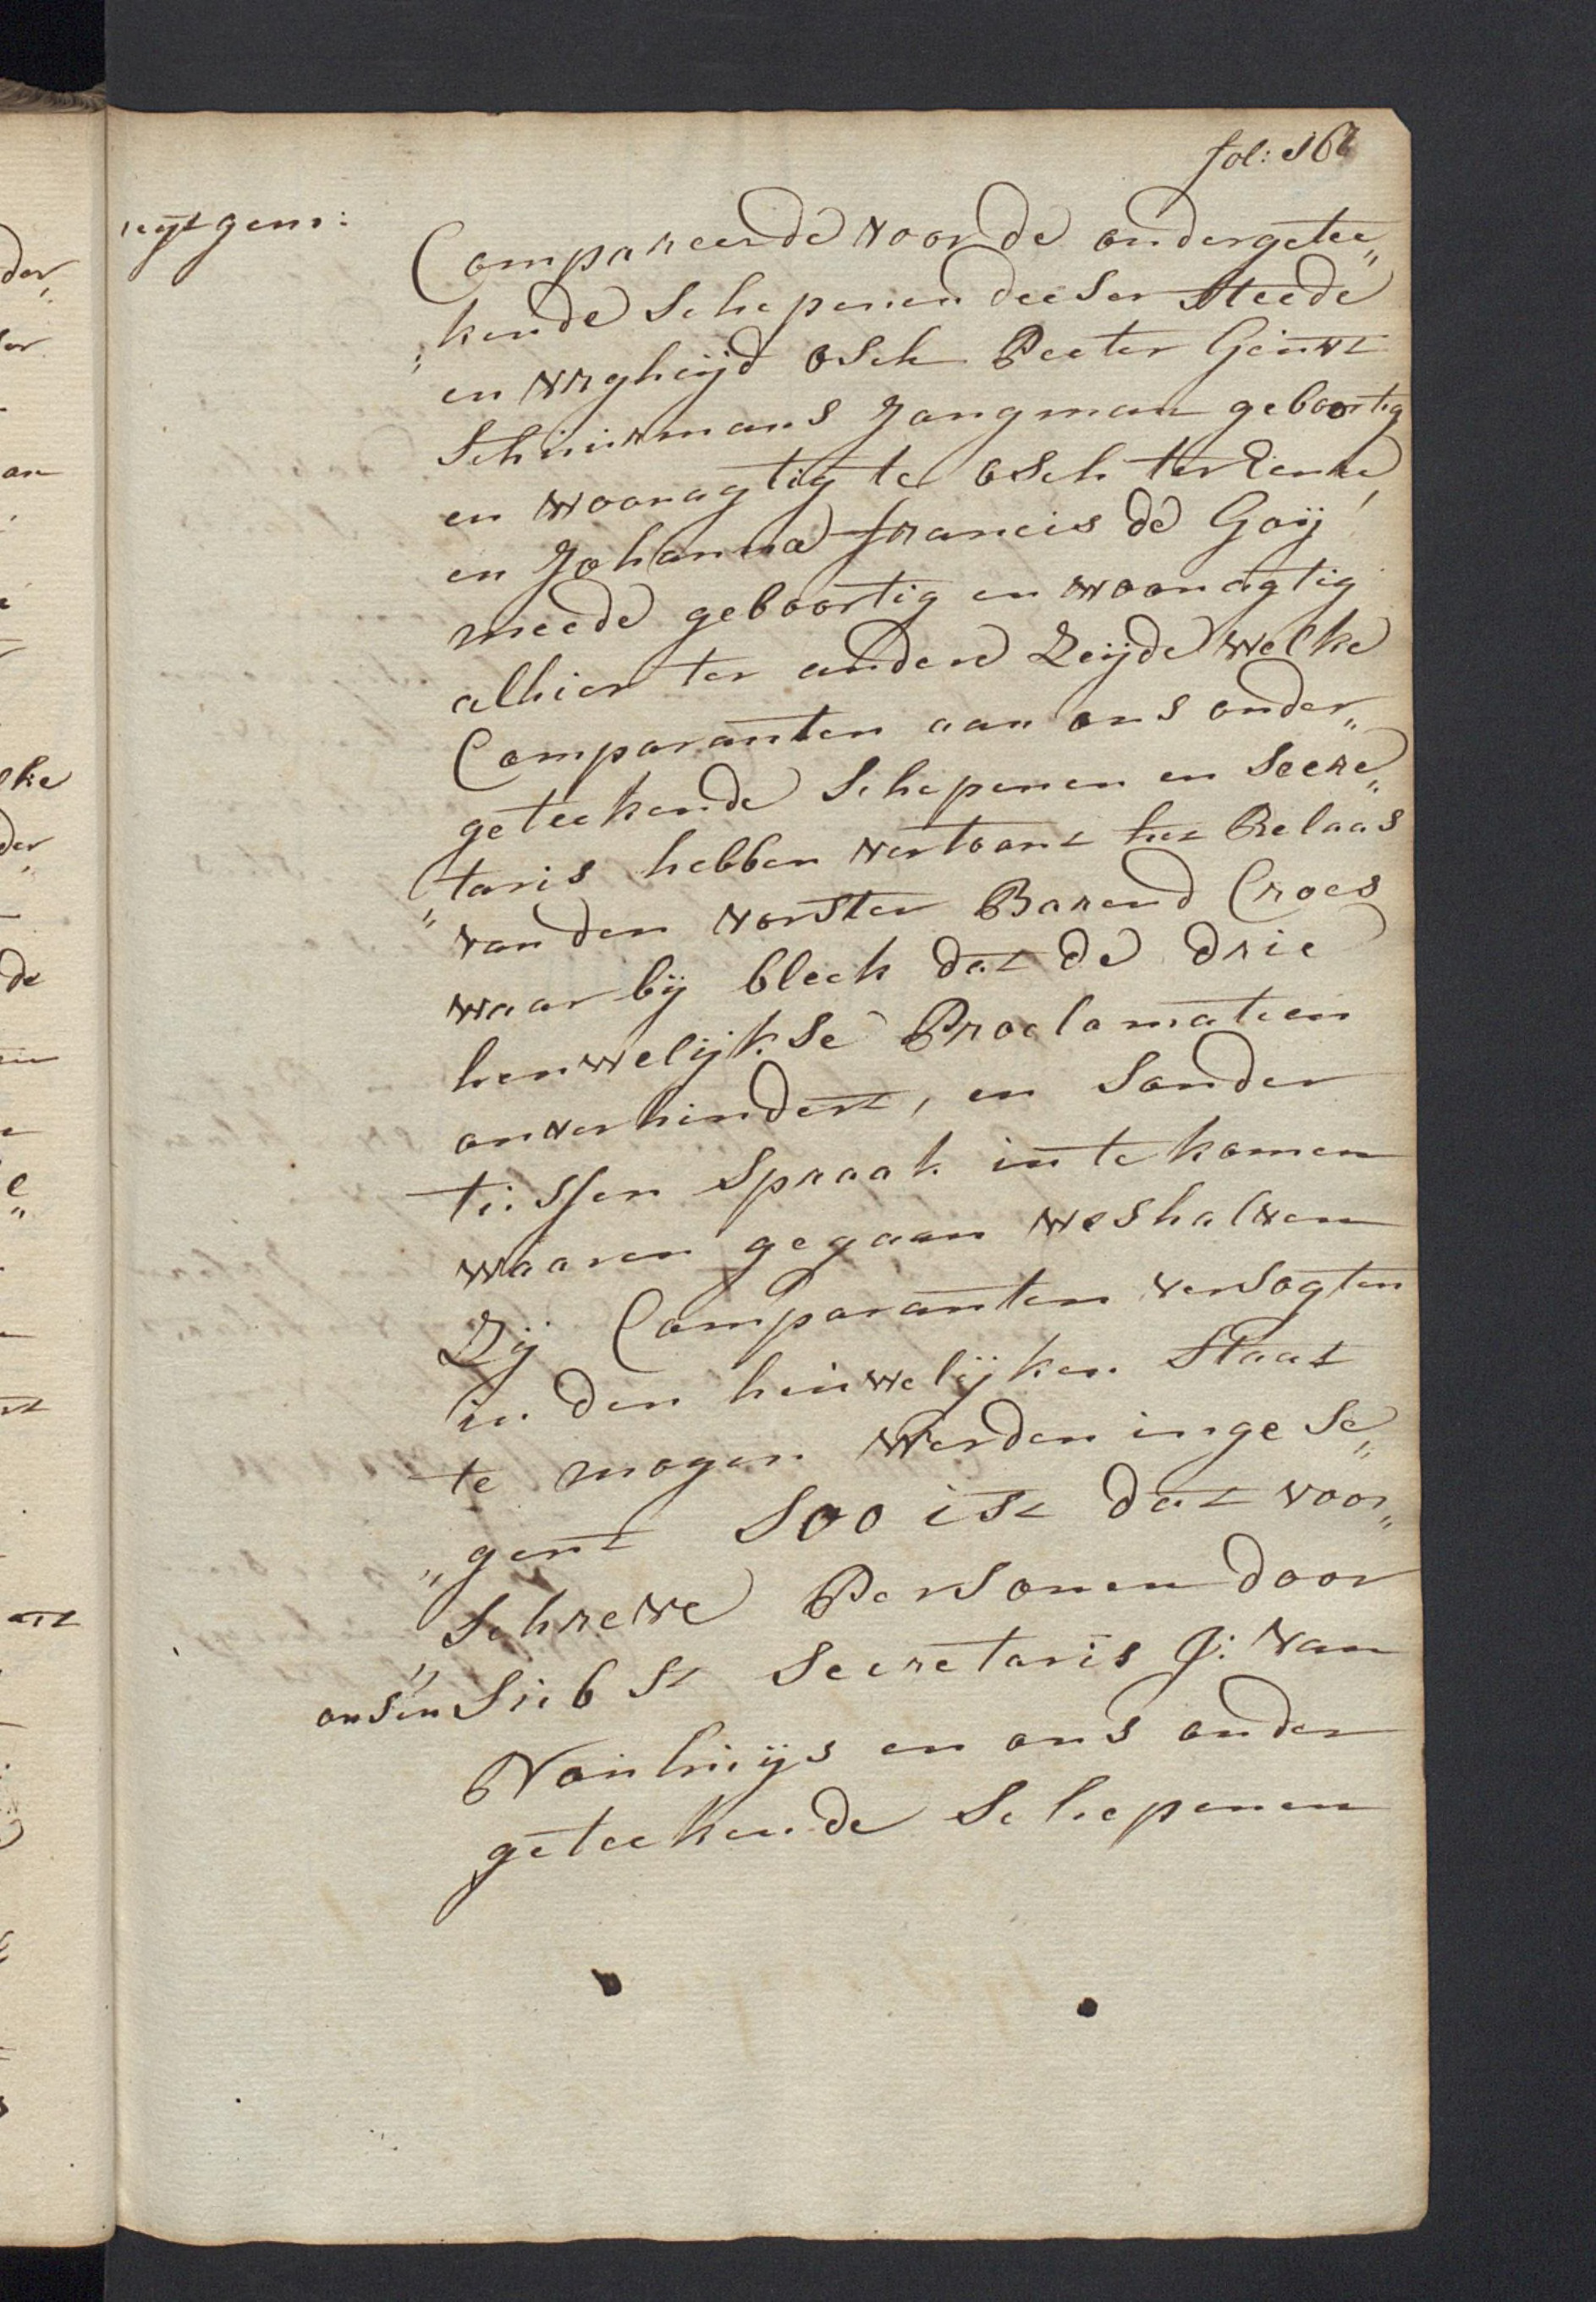 fol: 162
uijtgem:
Compareerde voor de ondergetee„
„kende Schepenen deeser Steede
en vrgheijd osch Peeter Geurt
Schuurmans Jongman geboortig
en woonagtig te osch ter Eenre,
en Johanna francis de Goij
meede geboortig en woonagtig
alhier ter andere Zeijde welke
Comparanten aan ons onder„
geteekende Schepenen en Secre„
„taris hebben vertoont het Relaas
van den vorster Barend Croes
waar bij bleek dat de drie
houwelijkse Proclamatien
onverhindert, en Sonder
tusssen Spraak in te komen
waaren gegaan weshalven
Zij Comparanten versogten
in den huwelijken Staat
te mogen werden inge Se„
„gent Soo ist dat voor„
Schreve Persoonen door
onsen Subst Secretaris J: van
Nouhuijs en ons onder
geteekende Schepenen